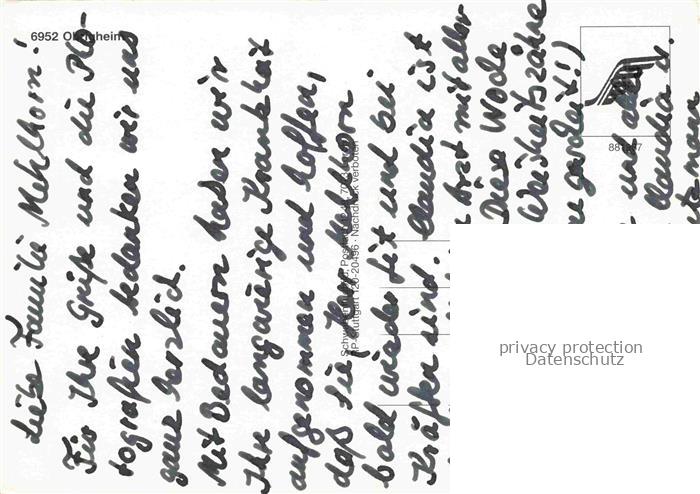 6952 Obrigheim
Liebe Familie Mehlhorn!
Für Ihre Grüße und die Pho-
tografien bedanken wir uns
ganz herzlich.
Mit Bedauern haben wir
Ihre langwierige Krankheit
aufgenommen und hoffen,
daß Sie, Herr Mehlhorn
bald wieder fit und bei
Kräften sind. Claudia ist
Arzt mit aller
Diese Woche
Weisheitszähne
und
Claudia u.
Stuttgart 120-20496 · Nachdruck verboten
privacy protection
Datenschutz